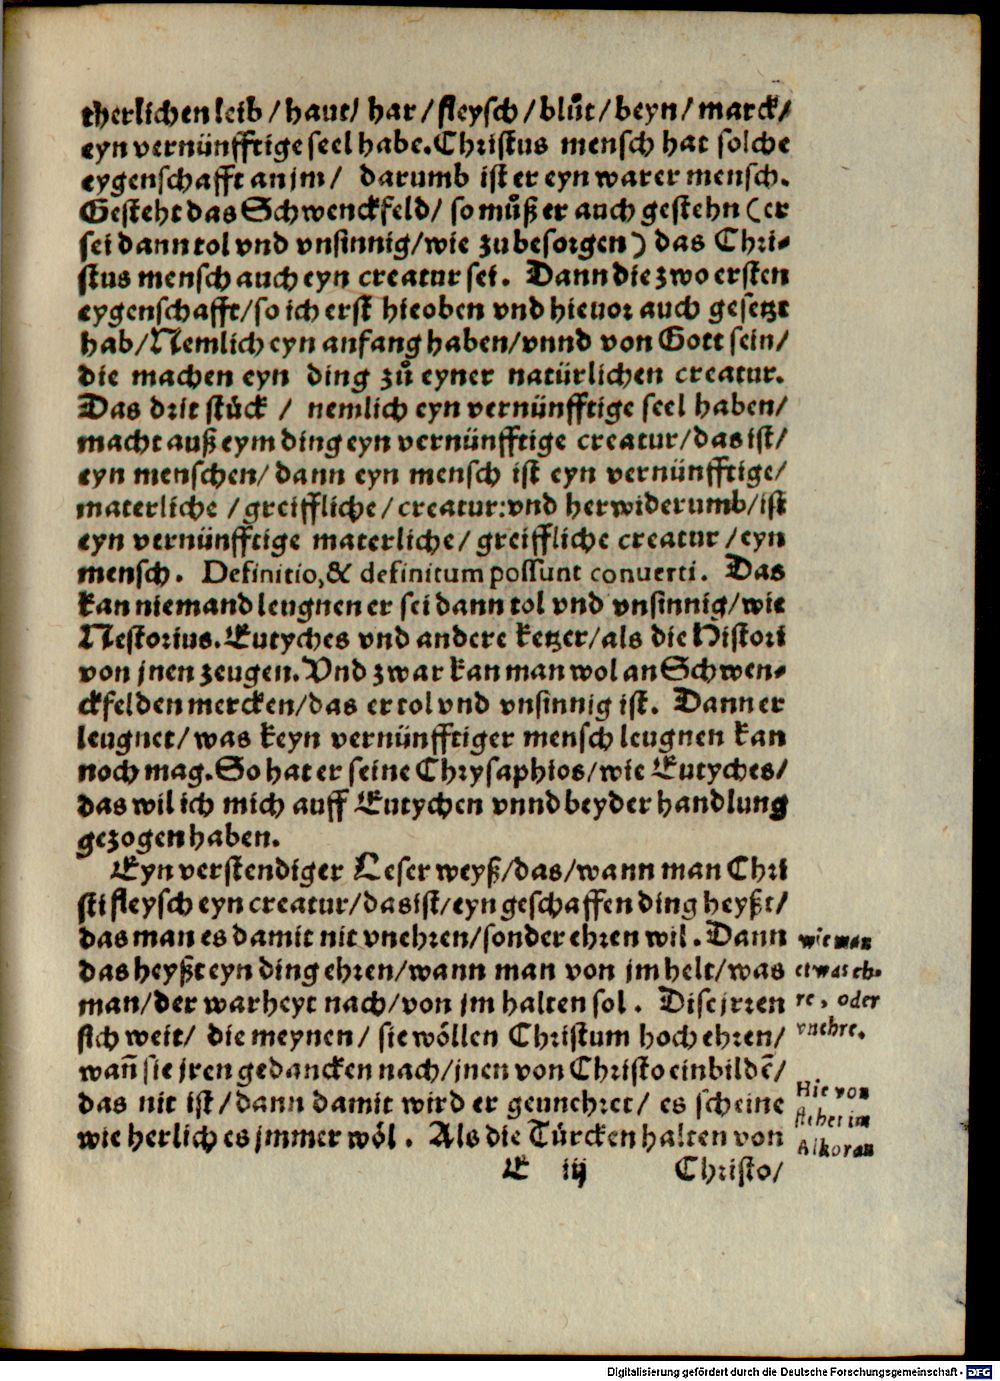 therlichen leib / haut / har / fleysch / blůt / beyn / marck /
eyn vernünfftige seel habe. Christus mensch hat solche
eygenschafft an jm / darumb ist er eyn warer mensch.
Gesteht das Schwenckfeld / so můß er auch gestehn (er
sei dann tol vnd vnsinnig / wie zu besorgen) das Chri-
stus mensch auch eyn creatur sei. Dann die zwo ersten
eygenschafft / so ich erst hieoben vnd hieuor auch gesetzt
hab / Nemlich eyn anfang haben / vnnd von Gott sein /
die machen eyn ding zů eyner natürlichen creatur.
Das drit stück / nemlich eyn vernünfftige seel haben /
macht auß eym ding eyn vernünfftige creatur / das ist /
eyn menschen / dann eyn mensch ist eyn vernünfftige /
materliche / greiffliche / creatur: vnd herwiderumb / ist
eyn vernünfftige materliche / greiffliche creatur / eyn
mensch. Definitio, & definitum possunt conuerti. Das
kan niemand leugnen er sei dann tol vnd vnsinnig / wie
Nestorius. Eutyches vnd andere ketzer / als die Histori
von jnen zeugen. Vnd zwar kan man wol an Schwen-
ckfelden mercken / das er tol vnd vnsinnig ist. Dann er
leugnet / was keyn vernünfftiger mensch leugnen kan
noch mag. So hat er seine Chrysaphios / wie Eutyches /
das wil ich mich auff Eutychen vnnd beyder handlung
gezogen haben.
Eyn verstendiger Leser weyß / das / wann man Chri
sti fleysch eyn creatur / das ist / eyn geschaffen ding heyßt /
das man es damit nit vnehren / sonder ehren wil. Dann
das heyßt eyn ding ehren / wann man von jm helt / was
man / der warheyt nach / von jm halten sol. Dise jrren
sich weit / die meynen / sie wöllen Christum hoch ehren /
wañ sie jren gedancken nach / jnen von Christo einbildē /
das nit ist / dann damit wird er geunehret / es scheine
wie herlich es jmmer wöl. Als die Türcken halten von
E iij Christo /
wie man
etwas eh-
re, oder
vnehre.
Hie von
stehet im
Alkoran
Digitalisierung gefördert durch die Deutsche Forschungsgemeinschaft - DFG